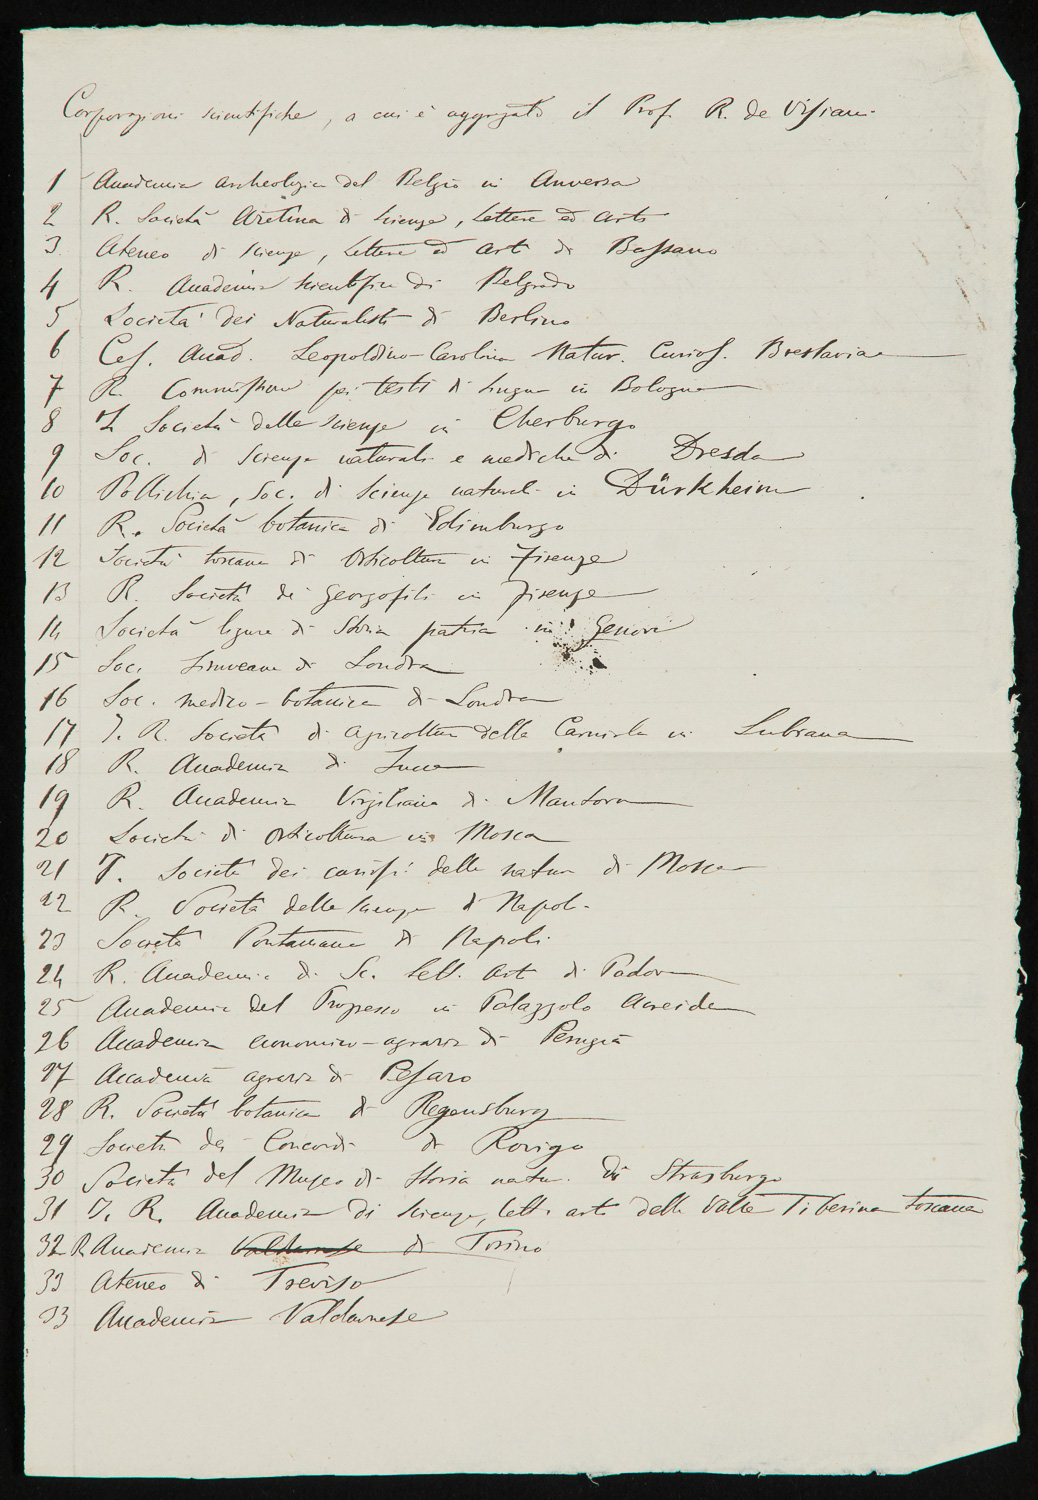 Corporazioni scientifiche, a cui è aggregato il Prof. R. de Visiani
1 Accademia archeologica del Belgio in Anversa
2 R. Società Aretina di Scienze, Lettere ed Arti
3. Ateneo di Scienze, Lettere ed Arti di Bassano
4 R. Accademia scientifica di Belgrado
5 Società dei Naturalisti di Berlino
6 Ces. Accad. Leopoldino-Carolina Natur. Curios. Breslavia
7 R. Commissione pei testi di Lingua in Bologna
8 I. Società delle Scienze in Cherburgo
9 Soc. di Scienze naturali e mediche di Dresda
10 Pollichia, Soc. di Scienze naturali in Dürkheim
11 R. Società botanica di Edimburgo
12 Società toscana di Orticoltura in Firenze
13 R. Società dei Georgofili in Firenze
14 Società ligure di Storia patria in Genova
15 Soc. Linneana di Londra
16 Soc. medico-botanica di Londra
17 I. R. Società di agricoltura della Carniola in Lubiana
18 R. Accademia di Lucca
19 R. Accademia Virgiliana di Mantova
20 Società di Orticoltura in Mosca
21 I. Società dei curiosi della natura di Mosca
22 R. Società delle Scienze di Napoli
23 Società Pontaniana di Napoli
24 R. Accademia di Sc. Lett. Arti di Padova
25 Accademia del Progresso in Palazzolo Acreide
26 Accademia economico-agraria di Perugia
27 Accademia agraria di Pesaro
28 R. Società botanica di Regensburg
29 Società dei Concordi di Rovigo
30 Società del Museo di Storia natur. di Strasburgo
31 I. R. Accademia di Scienze, Lett. arti della Valle Tiberina toscana
32 R Accademia Valdarnese di Torino
33 Ateneo di Treviso
33 Accademia Valdarnese